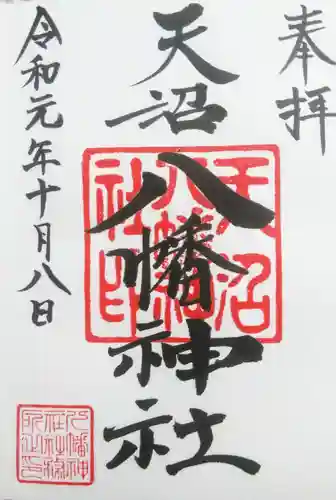 奉拝
天沼八幡神社
令和元年十月八日
天沼八幡社印